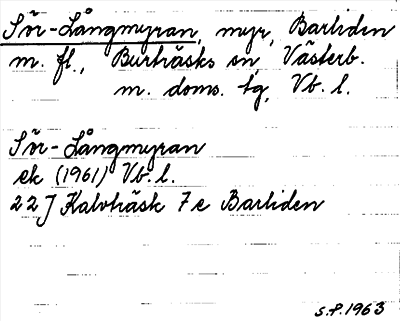 Sör-Långmyran, myr, Barliden
m. fl., Burträsks sn, Västerb.
m. doms. tg, Vb. l.
Sör-Långmyran
ek (1961) Vb. l.
22J Kalvträsk 7e Barliden
S.P. 1963